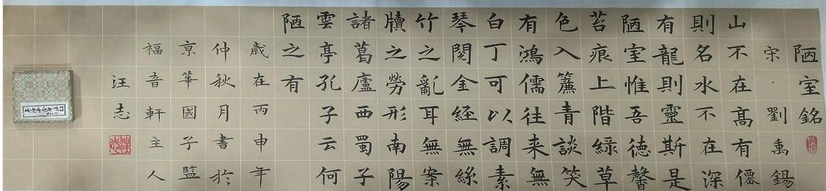 陋室銘
宋·劉禹錫
山不在髙有僊
則名水不在深
有龍則靈斯是
陋室惟吾德馨
苔痕上階綠草
色入簾青談笑
有鴻儒往來無
白丁可以調素
琴閱金經無絲
竹之亂耳無案
牘之勞形南陽
諸葛廬西蜀子
雲亭孔子云何
陋之有
歲在丙申年
仲秋月書於
京華國子監
福音軒主人
汪志